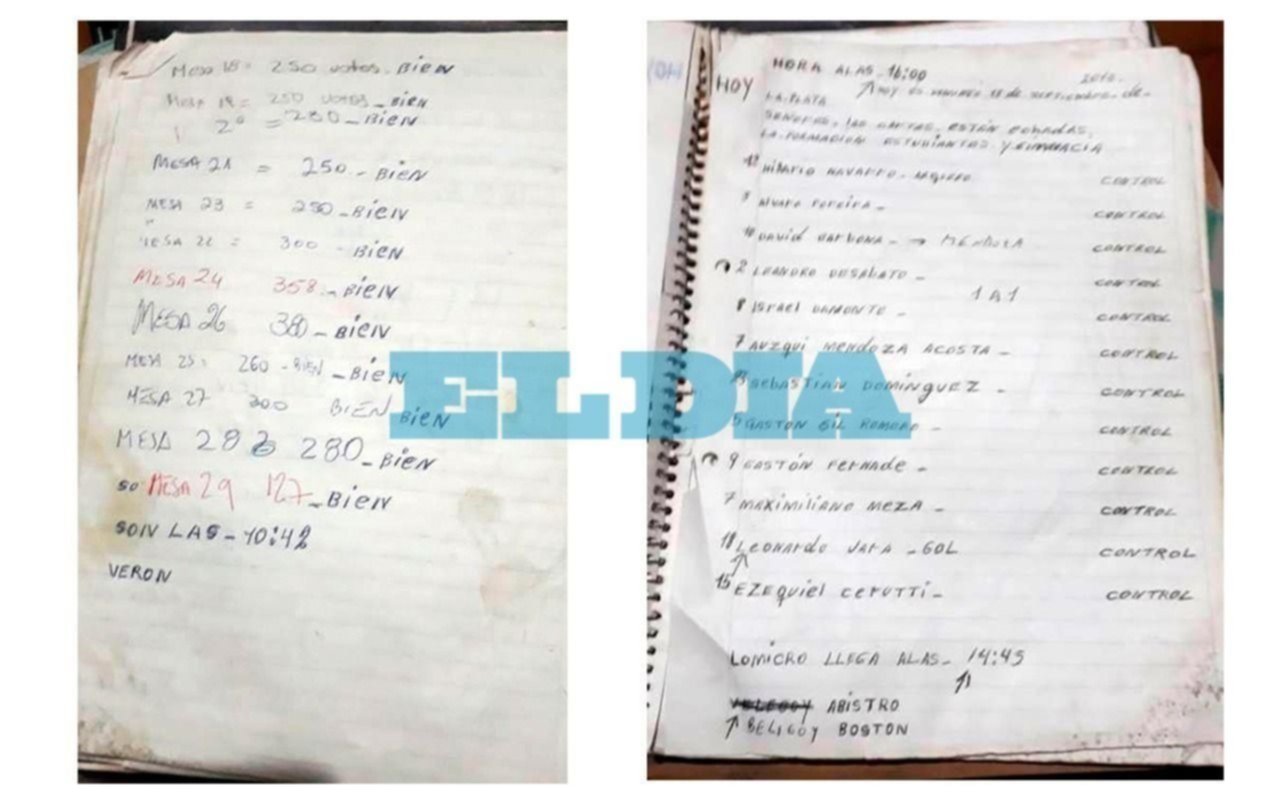 MESA 18 = 250 votos - BiEN
MESA 19 = 250 VOTOS - BiEN
2° = 280 - BiEN
MESA 21 = 250 - BiEN
MESA 23 = 250 - BiEN
MESA 22 = 300 - BiEN
MESA 24 358 - BiEN
MESA 26 380 - BiEN
MESA 25 = 260 - BiEN - BiEN
MESA 27 300 BIEN BiEN
MESA 28 280 - BiEN
so MESA 29 127 - BiEN
SON LAS - 10:42
VERON
EL DIA
HOY
HORA ALAS - 16:00
HOY ES 18 de SEPTIEMBRE - de - 2010.
LA PLATA
SEÑORES, LAS CARTAS, ESTÁN ECHADAS,
LA FORMACION ESTUDIANTES Y GIMNACIA
12 HILARIO NAVARRO - CONTROL
3 Alvaro Pereira - CONTROL
DAVID BARBONA - → MENDOZA CONTROL
2 LEANDRO DESABATO - CONTROL
1 A 1
8 ISrael DAMONTE - CONTROL
7 AUZQUI MENDOZA ACOSTA - CONTROL
SEBASTIAN DOMINGUEZ - CONTROL
5 GASTON GIL ROMERO - CONTROL
9 GASTÓN FERNADE - CONTROL
7 MAXIMILIANO MEZA - CONTROL
18 Leonardo JARA - GOL CONTROL
15 EZEQUiel CERUTTI - CONTROL
LOMICRO LLEGA ALAS - 14:45
ABISTRO
BELIGOY BOSTON